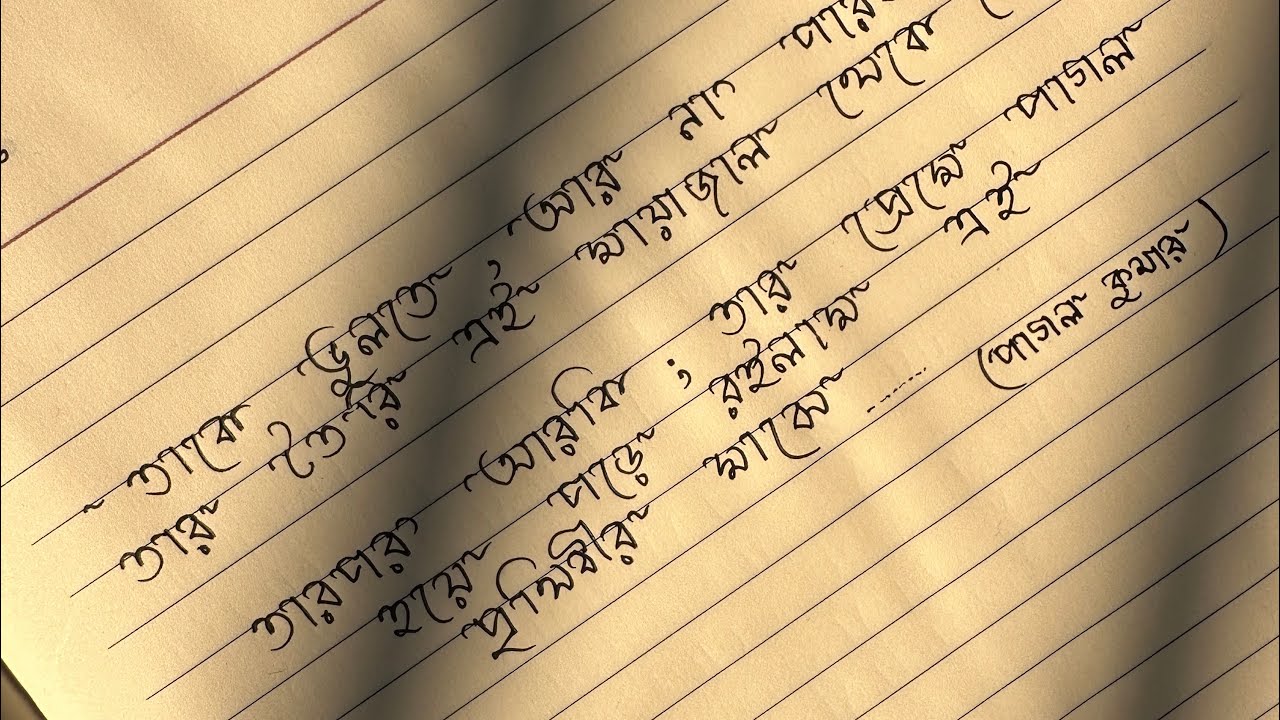 - তাকে ভুলতে, আর না
তার তৈরি এই মায়াজাল থেকে
তারপর আরকি ; তার প্রেমে পাগল
হয়ে পড়ে রইলাম এই
পৃথিবীর মাঝে ........
(পাগল কুমার)